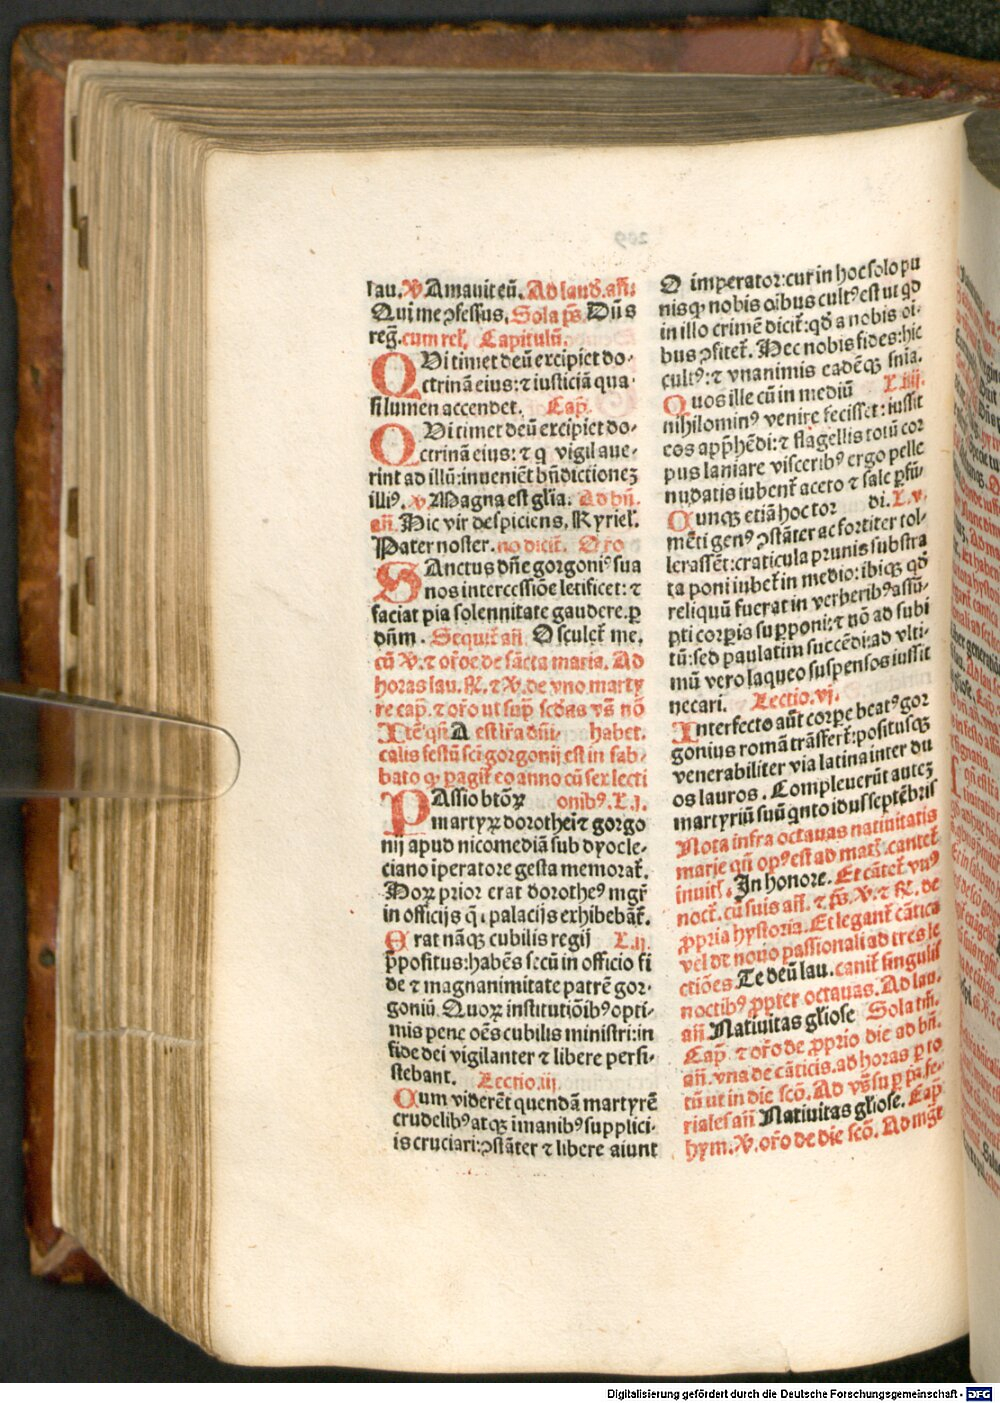 lau. ℣ Amauit eū. Ad laud. añ.
Qui me ꝯfessus. Sola p̄s. Dn̄s
reg̃. cum rel̃. Capitulū.
QVi timet deū excipiet do-
ctrinā eius: ⁊ iusticiā qua-
si lumen accendet. Cap̃.
QVi timet deū excipiet do-
ctrinā eius: ⁊ q vigilaue-
rint ad illū: inueniēt bn̄dictioneꝫ
illiꝰ. ℣ Magna est gl̃ia. Ad bn̄.
añ. Hic vir despiciens. Kyriel̃.
Pater noster. no dicit̃. Oro
SAnctus dn̄e gorgoniꝰ sua
nos intercessiōe letificet: ⁊
faciat pia solennitate gaudere. ꝑ
dn̄m. Sequit̃ añ. Osculet̃ me.
cū ℣. ⁊ orōe de sācta maria. Ad
horas lau. ℟. ⁊ ℣. de vno marty
re cap̃. ⁊ orō ut sup̃ scd̃as vs̄ nō
Itē qn̄ A est lr̃a dn̄i habet.
calis festū sc̄i gorgonij est in sab-
bato ꝙ pagit̃ eo anno cū sex lecti
PAssio btō℞ onibꝰ. L. j.
marty℞ dorothei ⁊ gorgo
nij apud nicomediā sub dyocle-
ciano īperatore gesta memorat̃.
Ho℞ prior erat dorotheꝰ mgr̃
in officijs q̄ ı palacijs exhibebāt̃.
Erat nāqꝫ cubilis regij L. ij.
p̄positus: habēs secū in officio fi
de ⁊ magnanimitate patrē gor-
goniū. Quo℞ institutiōibꝰ opti-
mis pene oēs cubilis ministri: in
fide dei vigilanter ⁊ libere persi-
stebant. Lectio. iij.
Cum viderēt quendā martyrē
crudelibꝰ atqꝫ imanibꝰ supplici-
is cruciari: ꝯstāter ⁊ libere aiunt
O imperator: cur in hoc solo pu
nis ꝙ nobis oībus cultꝰ est ut qd̄
in illo crimē dicit̃: qd̄ a nobis oī-
bus ꝯfitet̃. Hec nobis fides: hic
cultꝰ: ⁊ vnanimis eadēqꝫ sn̄ia.
Quos ille cū in mediū L. iiij.
nihilominꝰ venire fecisset: iussit
eos app̄hēdi: ⁊ flagellis totū cor
pus laniare visceribꝰ ergo pelle
nudatis iubent̃ aceto ⁊ sale ꝑfū-
Cunqꝫ etiā hoc tor di. L. v.
mēti genꝰ ꝯstāter ac fortiter tol-
lerassēt: craticula prunis substra
ta poni iubet̃ in medio: ibiqꝫ qd̄
reliquū fuerat in verberibꝰ assū-
pti corꝑis supponi: ⁊ nō ad subi
tū: sed paulatim succēdi: ad vlti-
mū vero laqueo suspensos iussit
necari. Lectio. vj.
Interfecto aūt corꝑe beatꝰ gor
gonius romā trāsfert̃: positusqꝫ
venerabiliter via latina inter du
os lauros. Compleuerūt auteꝫ
martyriū suū qnto idus septēbris
Nota infra octauas natiuitatis
marie qn̄ opꝰ est ad mat̃. cantet̃
inuit̃. In honore. Et cātet̃ vnꝰ
noct̃. cū suis añ. ⁊ p̄s. ℣. ⁊ ℟. de
ꝓpria hystoria. Et legant̃ cātica
vel de nouo passionali ad tres le
ctiōes. Te deū lau. canit̃ singulis
noctibꝰ ꝓpter octauas. Ad lau.
añ. Natiuitas gl̃iose Sola tm̃.
Cap̃. ⁊ orō de ꝓprio die ad bn̄.
añ. vna de cāticis. ad horas ꝑ to
tū ut in die scō. Ad vs̄ sup p̄s fe-
riales añ Natiuitas gl̃iose. Cap̃
hym. ℣. orō de die scō. Ad mgt̃
Digitalisierung gefördert durch die Deutsche Forschungsgemeinschaft - DFG